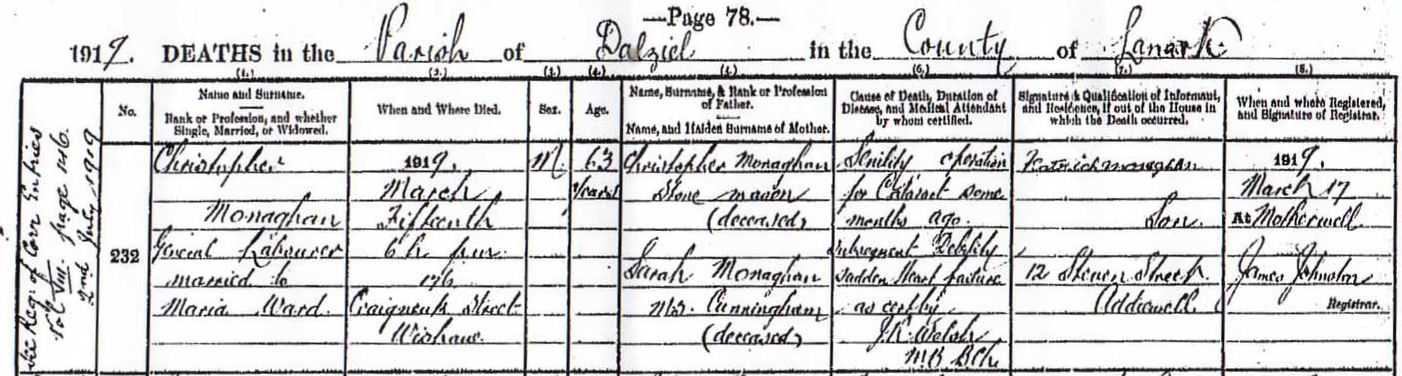 —Page 78.—
1919. DEATHS in the Parish of Dalziel in the County of Lanark
(1.) (2.) (3.) (4.) (5.) (6.) (7.) (8.)
No.
Name and Surname.
Rank or Profession, and whether
Single, Married, or Widowed.
When and Where Died.
Sex.
Age.
Name, Surname, & Rank or Profession
of Father.
Name, and Maiden Surname of Mother.
Cause of Death, Duration of
Disease, and Medical Attendant
by whom certified.
Signature & Qualification of Informant,
and Residence, if out of the House in
which the Death occurred.
When and where Registered,
and Signature of Registrar.
See Reg. of Corr Entries
Vol VIII. page 246.
2nd July 1919
232
Christopher
Monaghan
General Labourer
married to
Maria Ward.
1919.
March
Fifteenth
6h pm.
176
Craigneuk Street
Wishaw.
M.
63
Years
Christopher Monaghan
Stone mason
(deceased)
Sarah Monaghan
M.S. Cunningham
(deceased)
Senility operation
for Cataract some
months ago.
Subsequent Debility
Sudden Heart failure
as cert by
J.K. Welsh
M.B. B.Ch.
Patrick Monaghan
Son.
12 Steven Street.
Addiewell
1919.
March 17
At Motherwell
James Johnston
Registrar.